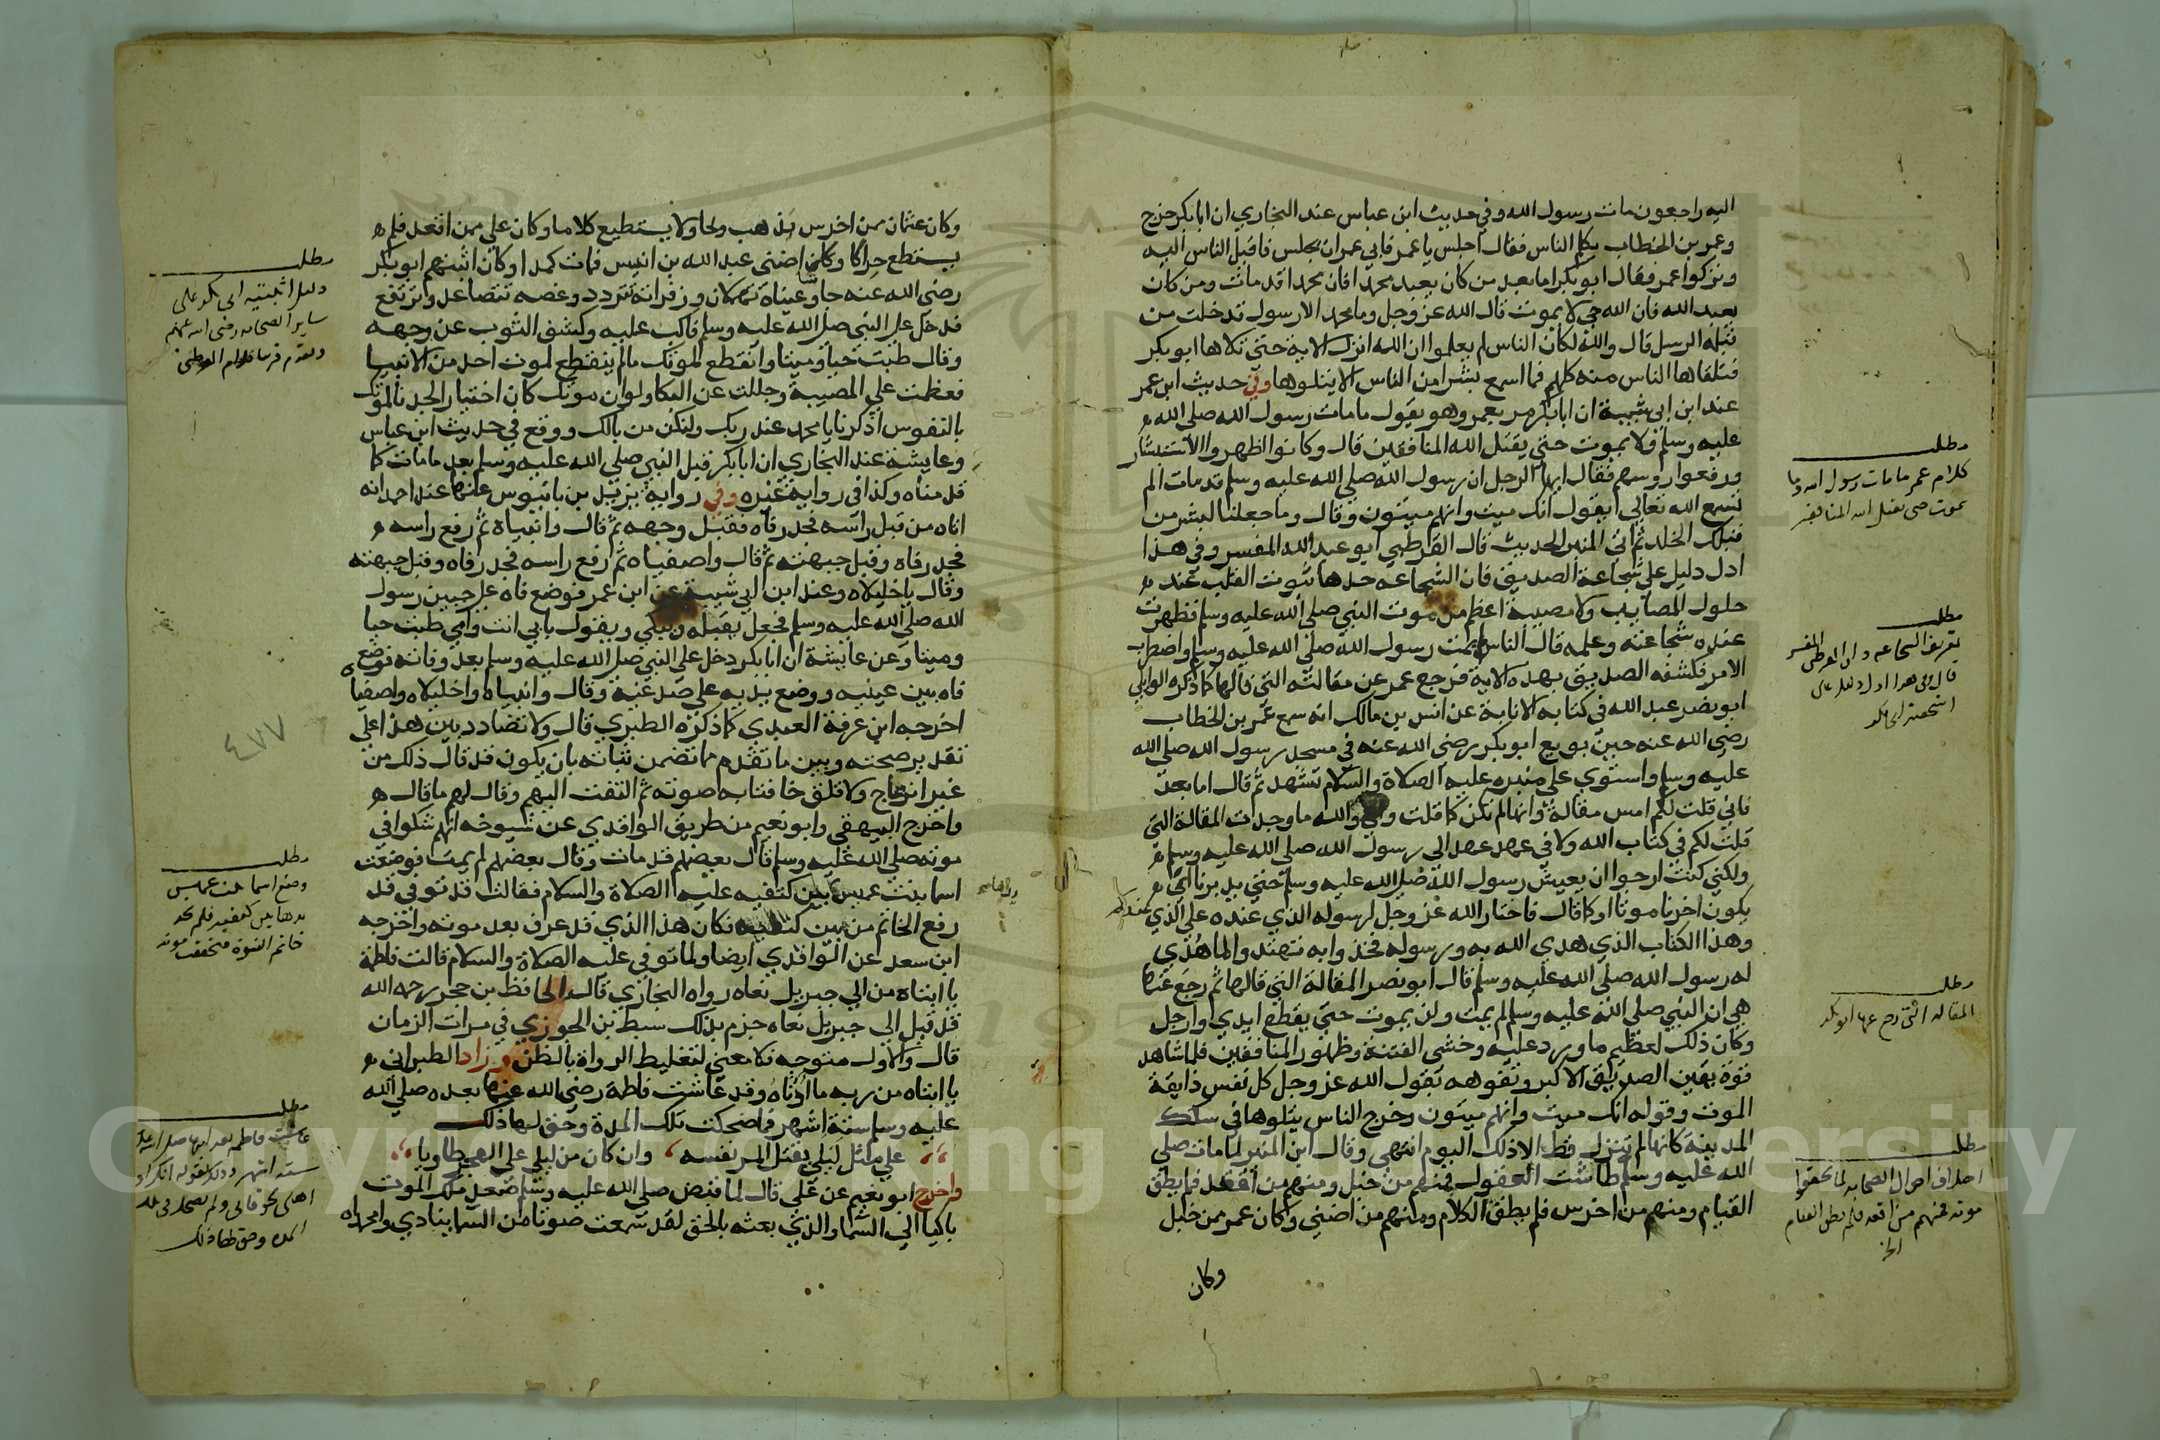 اليه راجعون مات رسول الله وفي حديث ابن عباس عند البخاري ان ابا بكر خرج
وعمر بن الخطاب يكلم الناس فقال اجلس يا عمر فابي عمر ان يجلس فاقبل الناس اليه
وتركوا عمر فقال ابو بكر اما بعد من كان يعبد محمدا فان محمدا قد مات ومن كان
يعبد الله فان الله حي لا يموت قال الله عز وجل وما محمد الا رسول قد خلت من
قبله الرسل قال والله لكان الناس لم يعلموا ان الله انزل الاية حتى تلاها ابو بكر
فتلقاها الناس منه كلهم فما اسمع بشرا من الناس الا يتلوها وفي حديث ابن عمر
عند ابن ابي شيبة ان ابا بكر مر بعمر وهو يقول ما مات رسول الله صلى الله
عليه وسلم ولا يموت حتى يقتل الله المنافقين قال وكانوا اظهروا الاستبشار
ورفعوا روسهم فقال ايها الرجل ان رسول الله صلى الله عليه وسلم قد مات الم
تسمع الله تعالى يقول انك ميت وانهم ميتون وقال وما جعلنا لبشر من
قبلك الخلد ثم اتى المنبر الحديث قال القرطبي ابو عبد الله المفسر وفي هذا
ادل دليل على شجاعة الصديق فان الشجاعة حدها ثبوت القلب عند
حلول المصايب ولا مصيبة اعظم من موت النبي صلى الله عليه وسلم فظهرت
عنده شجاعته وعلمه قال الناس لم يمت رسول الله صلى الله عليه وسلم واضطرب
الامر فكشفه الصديق بهذه الاية فرجع عمر عن مقالته التي قالها كما ذكره الوايلي
ابو نصر عبد الله في كتابه الابانة عن انس بن مالك انه سمع عمر بن الخطاب
رضي الله عنه حين بويع ابو بكر رضي الله عنه في مسجد رسول الله صلى الله
عليه وسلم واستوى على منبره عليه الصلاة والسلام تشهد ثم قال اما بعد
فاني قلت لكم امس مقالة وانها لم تكن كما قلت واني والله ما وجدت المقالة التي
قلت لكم في كتاب الله ولا في عهد عهد الي رسول الله صلى الله عليه وسلم
ولكني كنت ارجوا ان يعيش رسول الله صلى الله عليه وسلم حتى يدبرنا اي
يكون اخرنا موتا او كما قال فاختار الله عز وجل لرسوله الذي عنده على الذي عندكم
وهذا الكتاب الذي هدى الله به ورسوله فخذوا به تهتدوا لما هدي
له رسول الله صلى الله عليه وسلم قال ابو نصر المقالة التي قالها ثم رجع عنها
هي ان النبي صلى الله عليه وسلم لم يمت ولن يموت حتى يقطع ايدي وارجل
وكان ذلك لعظيم ما ورد عليه وخشي الفتنة وظهور المنافقين فلما شاهد
قوة يقين الصديق الاكبر وتفوهه بقول الله عز وجل كل نفس ذايقة
الموت وقوله انك ميت وانهم ميتون وخرج الناس يتلوها في سكك
المدينة كانها لم تنزل قط الا ذلك اليوم انتهى وقال ابن المنير لما مات صلى
الله عليه وسلم طاشت العقول فمنهم من خبل ومنهم من اقعد فلم يطق
القيام ومنهم من اخرس فلم يطق الكلام ومنهم من اضني وكان عمر ممن خبل
وكان
مطلب
كلام عمر ما مات رسول الله ولا
يموت حتى يقتل الله المنافقين
مطلب
تعريف الشجاعه
مطلب
المقاله التي رجع عنها
مطلب
اختلاف احوال الصحابه لما تحققوا
موته فمنهم من اقعد فلم يطق القيام
الخ
وكان عثمان ممن اخرس يذهب ولجا ولا يستطيع كلاما وكان علي ممن اقعد فلم
يستطع حراكا وكان اضني عبد الله بن انيس فمات كمدا وكان اثبتهم ابو بكر
رضي الله عنه جا وعيناه تهملان وزفراته تتردد وغصصه تتصاعد وترتفع
فدخل على النبي صلى الله عليه وسلم فاكب عليه وكشف الثوب عن وجهه
وقال طبت حيا وميتا وانقطع لموتك ما لم ينقطع لموت احد من الانبيا
فعظمت على المصيبة وجللت عن البكا ولو ان موتك كان اختيار الجدنا لموتك
بالنفوس اذكرنا يا محمد عند ربك ولنكن من بالك ووقع في حديث ابن عباس
وعايشة عند البخاري ان ابا بكر قبل النبي صلى الله عليه وسلم بعد ما مات كما
قدمناه وكذا في رواية غيره وفي رواية يزيد بن بابنوس عنها عند احمد انه
اتاه من قبل راسه فحدر فاه فقبل وجهه ثم قال وانبياه ثم رفع راسه
فحدر فاه وقبل جبهته ثم قال واصفياه ثم رفع راسه فحدر فاه وقبل جبهته
وقال يا خليلاه وعند ابن ابي شيبة عن ابن عمر فوضع فاه على جبين رسول
الله صلى الله عليه وسلم فجعل يقبله ويبكي ويقول بابي انت وامي طبت حيا
وميتا وعن عايشة ان ابا بكر دخل على النبي صلى الله عليه وسلم بعد وفاته فوضع
فاه بين عينيه ووضع يديه على صدغيه وقال وانبياه واخليلاه واصفياه
اخرجه ابن عرفة العبدي كما ذكره الطبري قال ولا تضاد بين هذا على
تقدير صحته وبين ما تقدم مما تضمن ثباته بان يكون قد قال ذلك من
غير انزعاج ولا قلق خافتا به صوته ثم التفت اليهم وقال لهم ما قال
واخرج البيهقي وابو نعيم من طريق الواقدي عن شيوخه انهم شكوا في
موته صلى الله عليه وسلم قال بعضهم قد مات وقال بعضهم لم يمت فوضعت
اسما بنت عميس يدها بين كتفيه عليه الصلاة والسلام فقالت قد توفي قد
رفع الخاتم من بين كتفيه فكان هذا الذي قد عرف بعد موته واخرجه
ابن سعد عن الواقدي ايضا ولما توفي عليه الصلاة والسلام قالت فاطمة
يا ابتاه من الي جبريل نعاه رواه البخاري قال الحافظ بن حجر رحمه الله
قد قيل الى جبريل نعاه جزم بذلك سبط بن الجوزي في مرات الزمان
قال والاول متوجه فلا معنى لتغليط الرواة بالظن وزاد الطبراني
يا ابتاه من ربه ما ادناه وقد عاشت فاطمة رضي الله عنها بعده صلى الله
عليه وسلم ستة اشهر فما ضحكت تلك المدة وحق لها ذلك
على مثل ليلى يقتل المر نفسه وان كان من ليلى على الهجر طاويا
واخرج ابو نعيم عن علي قال لما قبض صلى الله عليه وسلم صعد ملك الموت
باكيا الى السما والذي بعثه بالحق لقد سمعت صوتا من السما ينادي وامحمداه
مطلب
دليل اثبتيه ابي بكر على
ساير الصحابه رضي الله عنهم
٤٧٧
مطلب
وضع اسما بنت عميس
يدها بين كتفيه فلم تجد
خاتم النبوة فتحققت موته
مطلب
عاشت فاطمه بعد ابيها صلى الله عليه
سته اشهر
المده وحق لها ذلك